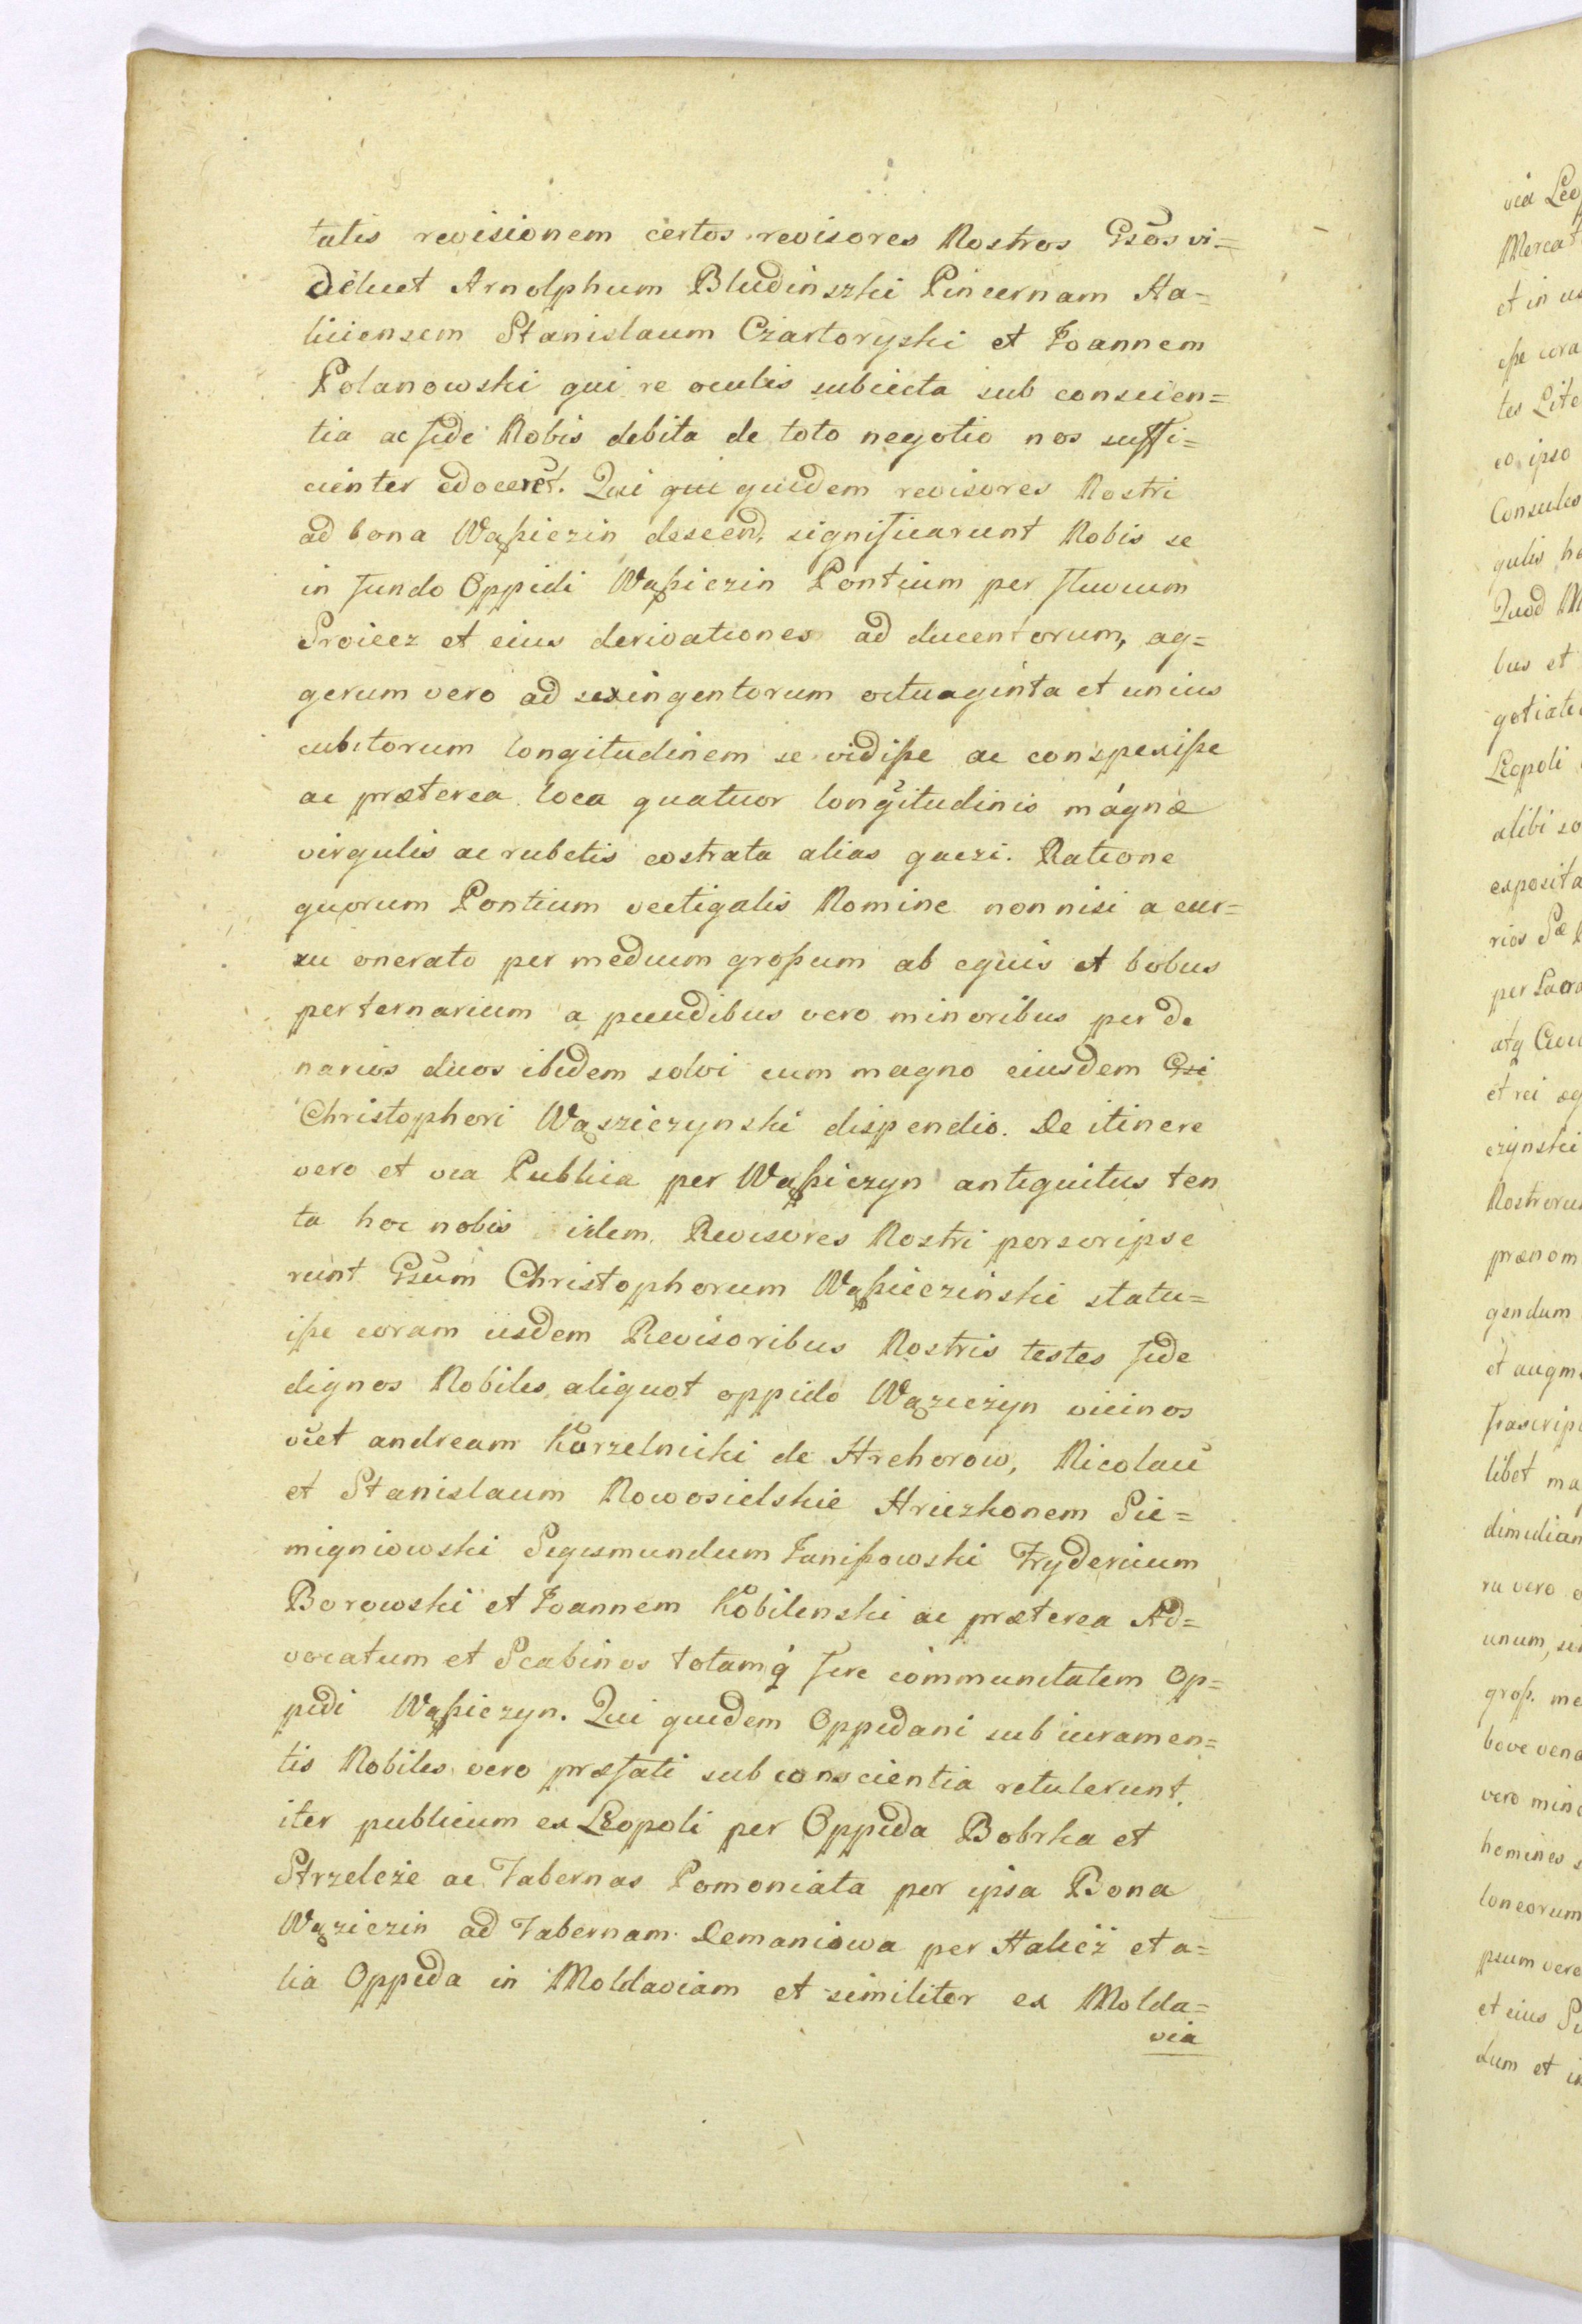 talis revisionem certos revisores Nostros Gsos vi=
delicet Arnolphum Bludinszki Pincernam Ha=
liciensem Stanislaum Czartoryski et Joannem
Polanowski qui re oculis subiecta sub conscien=
tia ac fide Nobis debita de toto negotio nos suffi=
cienter edoceret. Qui qui quidem revisores Nostri
ad bona Wąssiczin descend. significarunt Nobis se
in fundo Oppidi Wąssiczin Pontium per fluvium
Swicz et eius derivationes ad ducentorum, ag=
gerum vero ad sexingentorum octuaginta et unius
cubitorum longitudinem se vidisse ac conspexisse
ac præterea loca quatuor longitudinis magnæ
virgulis ac rubetis costrata alias gaczi. Ratione
quorum Pontium vectigalis Nomine non nisi a cur=
ru onerato per medium grossum ab equis et bobus
per ternarium a pecudibus vero minoribus per de
narios duos ibidem solvi cum magno eiusdem Gsi
Christophori Wąsziczynski dispendio. De itinere
vero et via Publica per Wąssiczyn antiquitus ten
ta hoc nobis iidem Revisores Nostri perscripse
runt Gsum Christophorum Wąssiczinski statu=
isse coram iisdem Revisoribus Nostris testes fide
dignos Nobiles aliquot oppido Wąziczyn vicinos
vict andream Korzelnicki de Hrehorow, Nicolau
et Stanislaum Nowosielskie Hriczkonem Sie=
migniowski Segismundum Janissowski Frydericum
Borowski et Joannem Kobilenski ac præterea Ad=
vocatum et Scabinos totamq fere communitatem Op=
pidi Wąssiczyn. Qui quidem Oppidani sub iuramen=
tis Nobiles vero præfati sub conscientia retulerunt
iter publicum ex Leopoli per Oppida Bobrka et
Strzeleze ac Tabernas Pomoniata per ipsa Bona
Wąziczin ad Tabernam Demaniowa per Halicz et a=
lia Oppida in Moldaviam et similiter ex Molda=
via
via Leo
Mercat
et in us
esse cora
tes Lite
eo ipso
Consules
gulis
Quod
bus et
gotiato
Leopoli
alibi so
exposita
rios
per
atq
et rei
czynski
Nostroru
prænom
gendum
et augm
libet ma
dimidian
ru vero
unum,
gross. me
bove
vero mino
homines
loneorum
psum vero
et eius
dum et